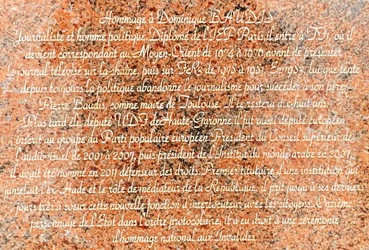 Hommage à Dominique BAUDIS
Journaliste et homme politique. Diplômé de l'IEP Paris il entre à TF1 où il
devient correspondant au Moyen-Orient de 1974 à 1976 avant de présenter
le journal télévisé sur la chaîne, puis sur FR3 de 1978 à 1981. En 1983, lui que tente
depuis toujours la politique abandonne le journalisme pour succéder à son père,
Pierre Baudis, comme maire de Toulouse. Il le restera dix-huit ans.
Plus tard élu député UDF de Haute-Garonne il fut aussi député européen
inscrit au groupe du Parti populaire européen. Président du Conseil supérieur de
l'audiovisuel de 2001 à 2007, puis président de l'Institut du monde arabe en 2007,
il avait été nommé en 2011 défenseur des droits. Premier titulaire d'une institution qui
jumelait l'ex-Halde et le rôle de médiateur de la République, il prit jusqu'à ses derniers
jours très à coeur cette nouvelle fonction d'interlocuteur avec les citoyens. Onzième
personnage de l'Etat dans l'ordre protocolaire, il a eu droit à une cérémonie
d'hommage national aux Invalides.